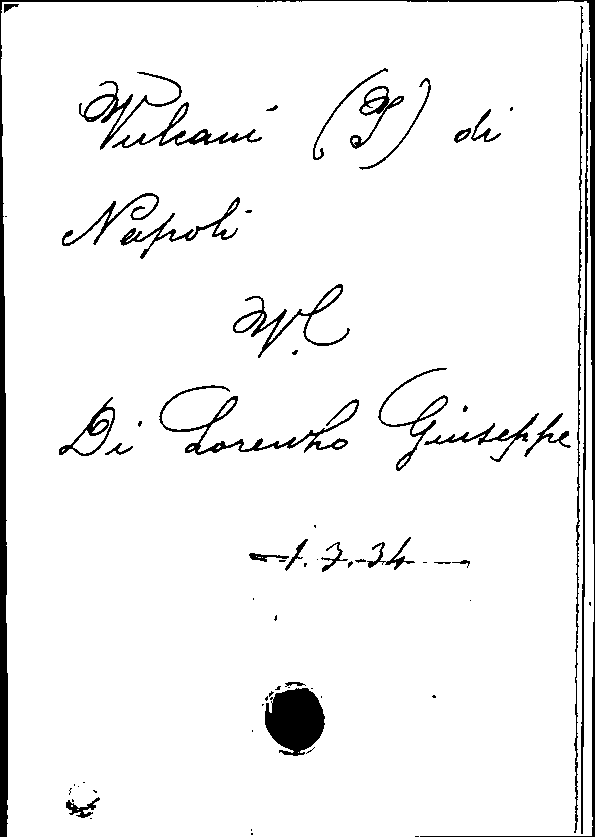 Vulcani (I) di
Napoli
V. C
Di Lorenzo Giuseppe
1.7.34